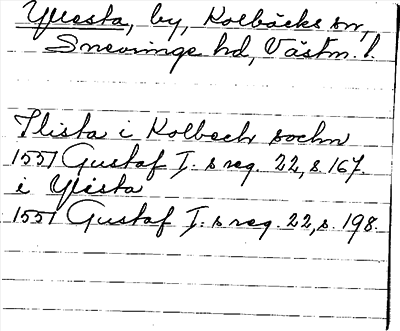 Yllesta, by, Kolbäcks sn,
Snevringe hd, Västm. l.
Ilista i Kolbech sochn
1557 Gustaf I:s reg. 22, s. 167.
i Ylista
1557 Gustaf I:s reg. 22, s. 198.